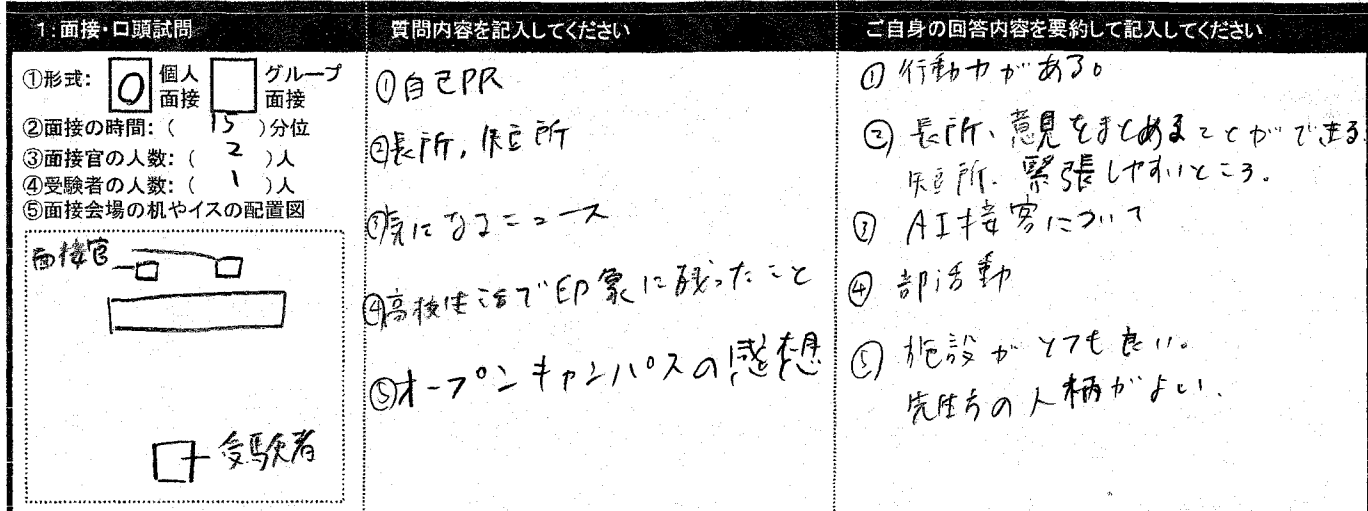 1:面接・口頭試問
①形式: 0 個人面接 グループ面接
②面接の時間:( 15 )分位
③面接官の人数:( 2 )人
④受験者の人数:( 1 )人
⑤面接会場の机やイスの配置図
面接官
受験者
質問内容を記入してください
①自己PR
②長所,短所
③気になるニュース
④高校生活で印象に残ったこと
⑤オープンキャンパスの感想
ご自身の回答内容を要約して記入してください
① 行動力がある。
② 長所、意見をまとめることができる
短所、緊張しやすいところ.
③ AI接客について
④ 部活動
⑤ 施設がとても良い。
先生方の人柄がよい.